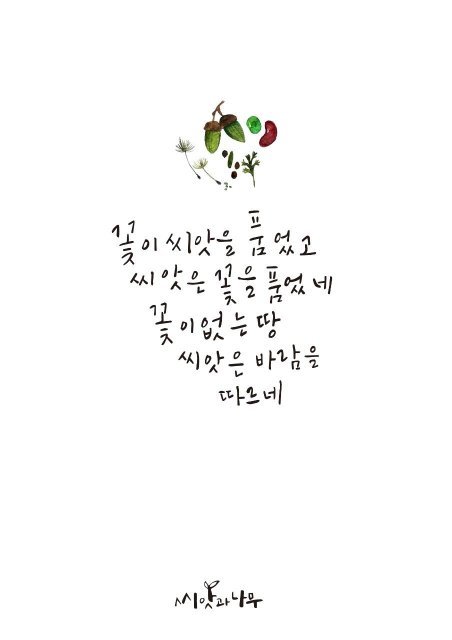 꽃이 씨앗을 품었고
씨앗은 꽃을 품었네
꽃이 없는 땅
씨앗은 바람을
따르네
씨앗과나무